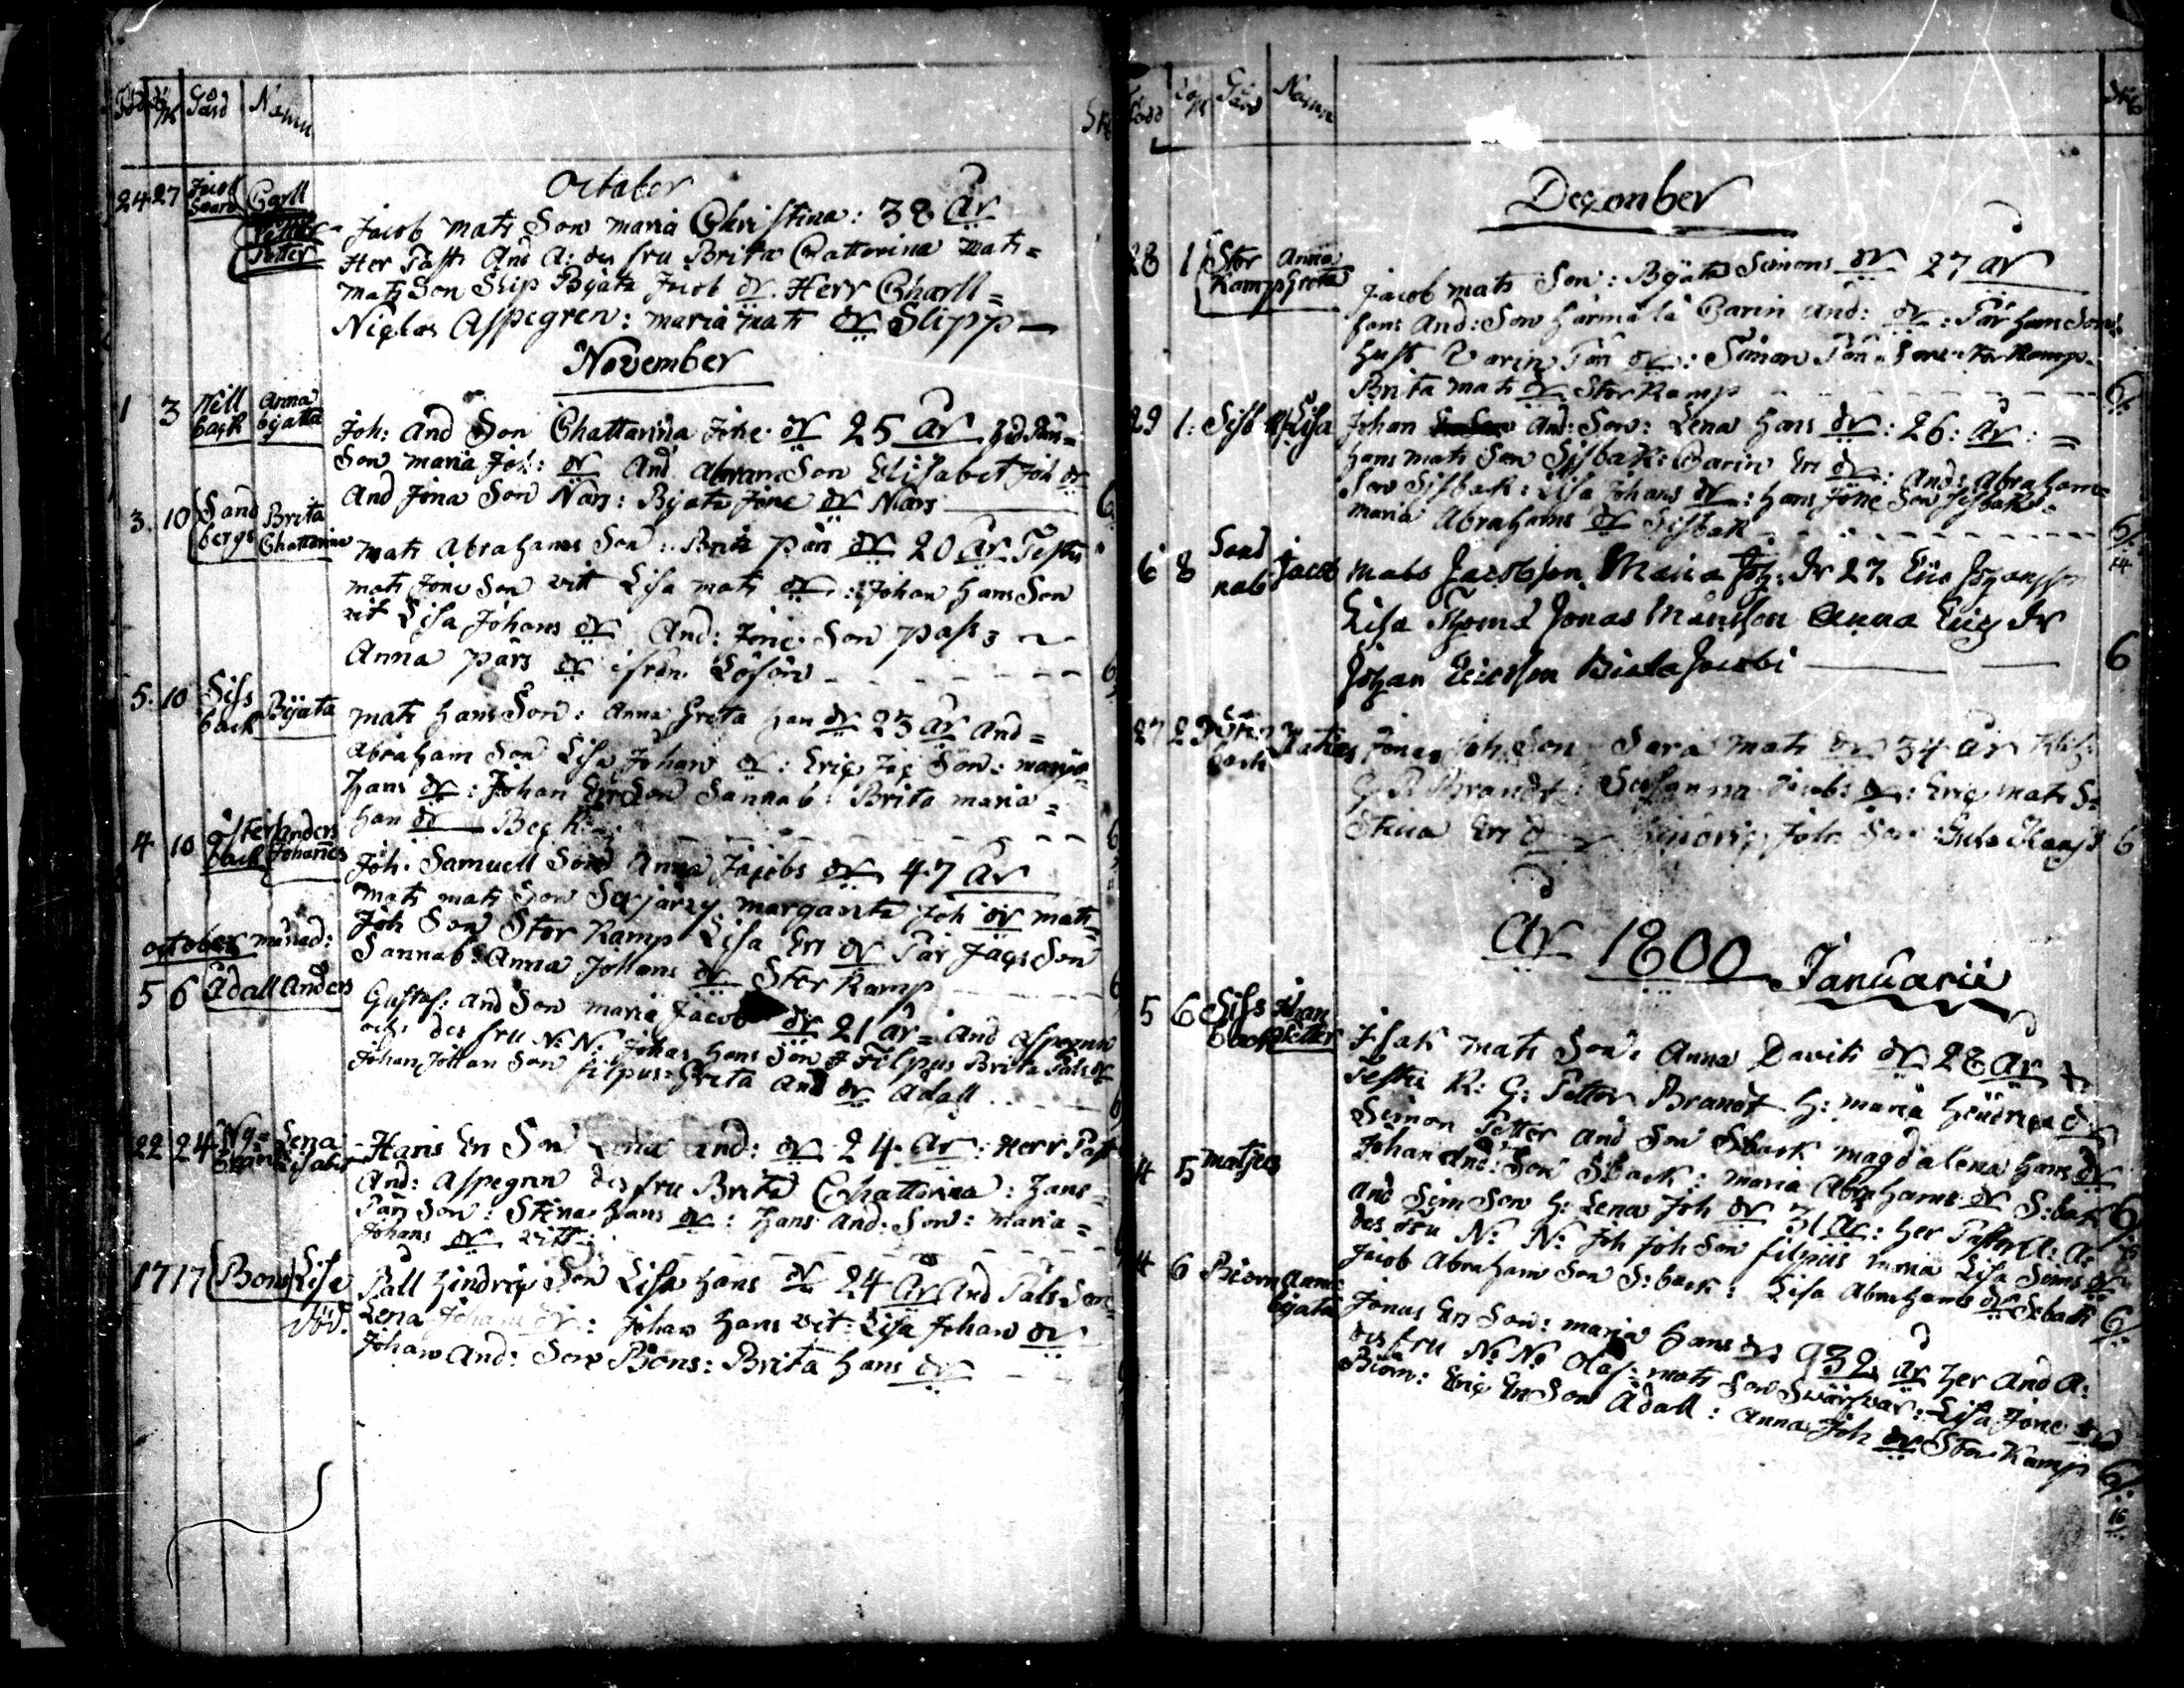 Gård Namn Sk:
October
24 27 Jacob Carll
Petter
Jacob Mats Son Maria Christina: 38 år
Her Past: And A: des fru Brita Chattarina Mats=
mats Son Slip Byata Jacob dr. Herr Charll=
Niclas Aspegren: Maria Mats dr Slipp
November
1 3 Anna
byatta
Joh: And Son Chattarina Jone dr 25 år
Son Maria Joh: dr And Abram Son Elisabet Joh dr
And Jona Son Nars: Byata Jone dr Nars 6
3. 10 Sand Brita
bergs Chattarina
Mats Abrahams Son: Brita Pärs dr 20 år Testes
mats Jone Son vitt Lisa mats dr: Johan Hans Son
vit Lisa Johans dr And: Jone Son pass
Anna Pärs dr ifrån Lösörn 6
5. 10 Siss Byata
back
Mats Hans Son: Anna Greta Han dr 23 år And=
Abraham Son Lisa Johans dr: Eric Jac Son: Maria
Hans dr: Johan Eri Son Sannab: Brita Maria=
Han dr Beck 6
4 10 Öster Anders
back Johannes
Joh. Samuell Son Anna Jacobs dr 47 år
Mats Mats Son Margareta Joh dr Mats
Joh Son Stor Kamp Lisa Eri dr Pär Jacs Son
Sannab: Anna Johans dr Stor Kamp 6
october månad:
5 6 Ådall Anders
Gustaf: And Son Maria Jacobs dr 21 år = And Aspegren
och des fru N: N: Johas Hans Son Filpus Brita Pals dr
Johan Johan Son filpus: Greta And dr Ådall 6
22 24 Ny= Lena
Lisabet
Hans Eri Son Lena And: dr 24 år: Herr Past
And: Aspegren des fru Brita Chattarina: Hans=
Pärs Son: Stina Hans dr: Hans And: Son: Maria=
Johans dr vitt:
17 17 Bons Lisa
död.
Påll Hindric Son Lisa Hans dr 24 år And Påls Son
Lena Johans dr: Johan Hans vit: Lisa Johan dr
Johan And: Son Bons: Brita Hans dr
Född Gård Namn Sk:
Dezember
28 1 Stor Anna
Kamp Greta
Jacob Mats Son: Byata Simons dr 27 år
Hans And: Son Härmälä Carin And: dr: Pär Hans Sons
Hust Carin Pärs dr: Simon Pär Son: Stor Kamp
Brita Mats dr Stor Kamp 6
29 1. Sisb Lisa
Johan And: Son: Lena Hans dr: 26: år: =
Hans Mats Son Sisbak: Carin Eri dr: And: Abraham=
Son Sisback: Lisa Johans dr: Hans Jone Son Sisbak:
Maria Abrahams dr Sisbak 6
6 8 Sand Jacob
nab
Mats Jacobsson Maria Joh: Dr 27. Eric Johansson
Lisa Thoms Jonas Mansson Anna Eric Dr
Johan Ericsson Biata Jacobi 6
27 29 Matias
back
Jonas Joh: Son Sara Mats dr 34 år
G R Brandt: Susanna Jacobs dr: Eric Mats S:
Stina Eri d Hindric Joh: Son 6
År 1800 Januarii
5 6 Siss Johan
back Petter
Isak Mats Son: Anna Davits dr 28 år
Testes R: G: Petter Brandt H: Maria Hendrica d
Simon Petter And Son Sback Magdalena Hans dr
Johan And: Son Sback: Maria Abrahams dr S:bak 6
4 5 Matjus
And Sim Son H: Lena Joh dr 31 år: Her Pastor A: A:
des fru N: N: Joh Joh Son filpus Maria Lisa Sims dr
Jacob Abraham Son S:back: Lisa Abrahams dr Sback 6
4 6 Biörn Anna
byata
Jonas Eri Son: Maria Hans dr 32 år Her And A:
des fru N: N: Olaf: Mats Son Svärsvar: Lisa Jone
Biörn: Eric Eri Son Ådall: Anna Joh dr Stor Kamp 6
16